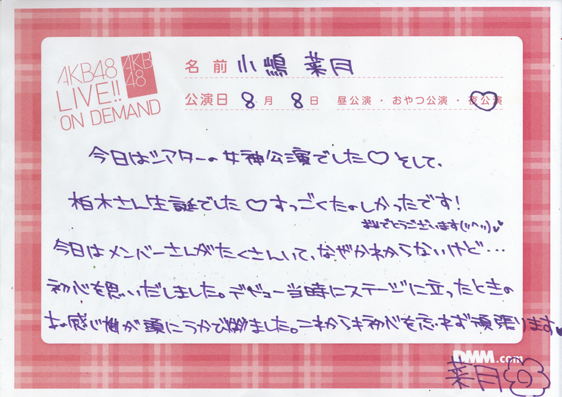 AKB48
LIVE!!
ON DEMAND
AKB
48
名前 小嶋 菜月
公演日 8月 8日 昼公演・おやつ公演・夜公演
今日はシアターの女神公演でした♡そして、
柏木さん生誕でした♡すっごくたのしかったです!
おめでとうございます
今日はメンバーさんがたくさんいて、なぜかわからないけど・・・
初心を思いだしました。デビュー当時にステージに立ったときの
感じが頭にうかびました。これからも初心を忘れず頑張ります
DMM.com
菜月